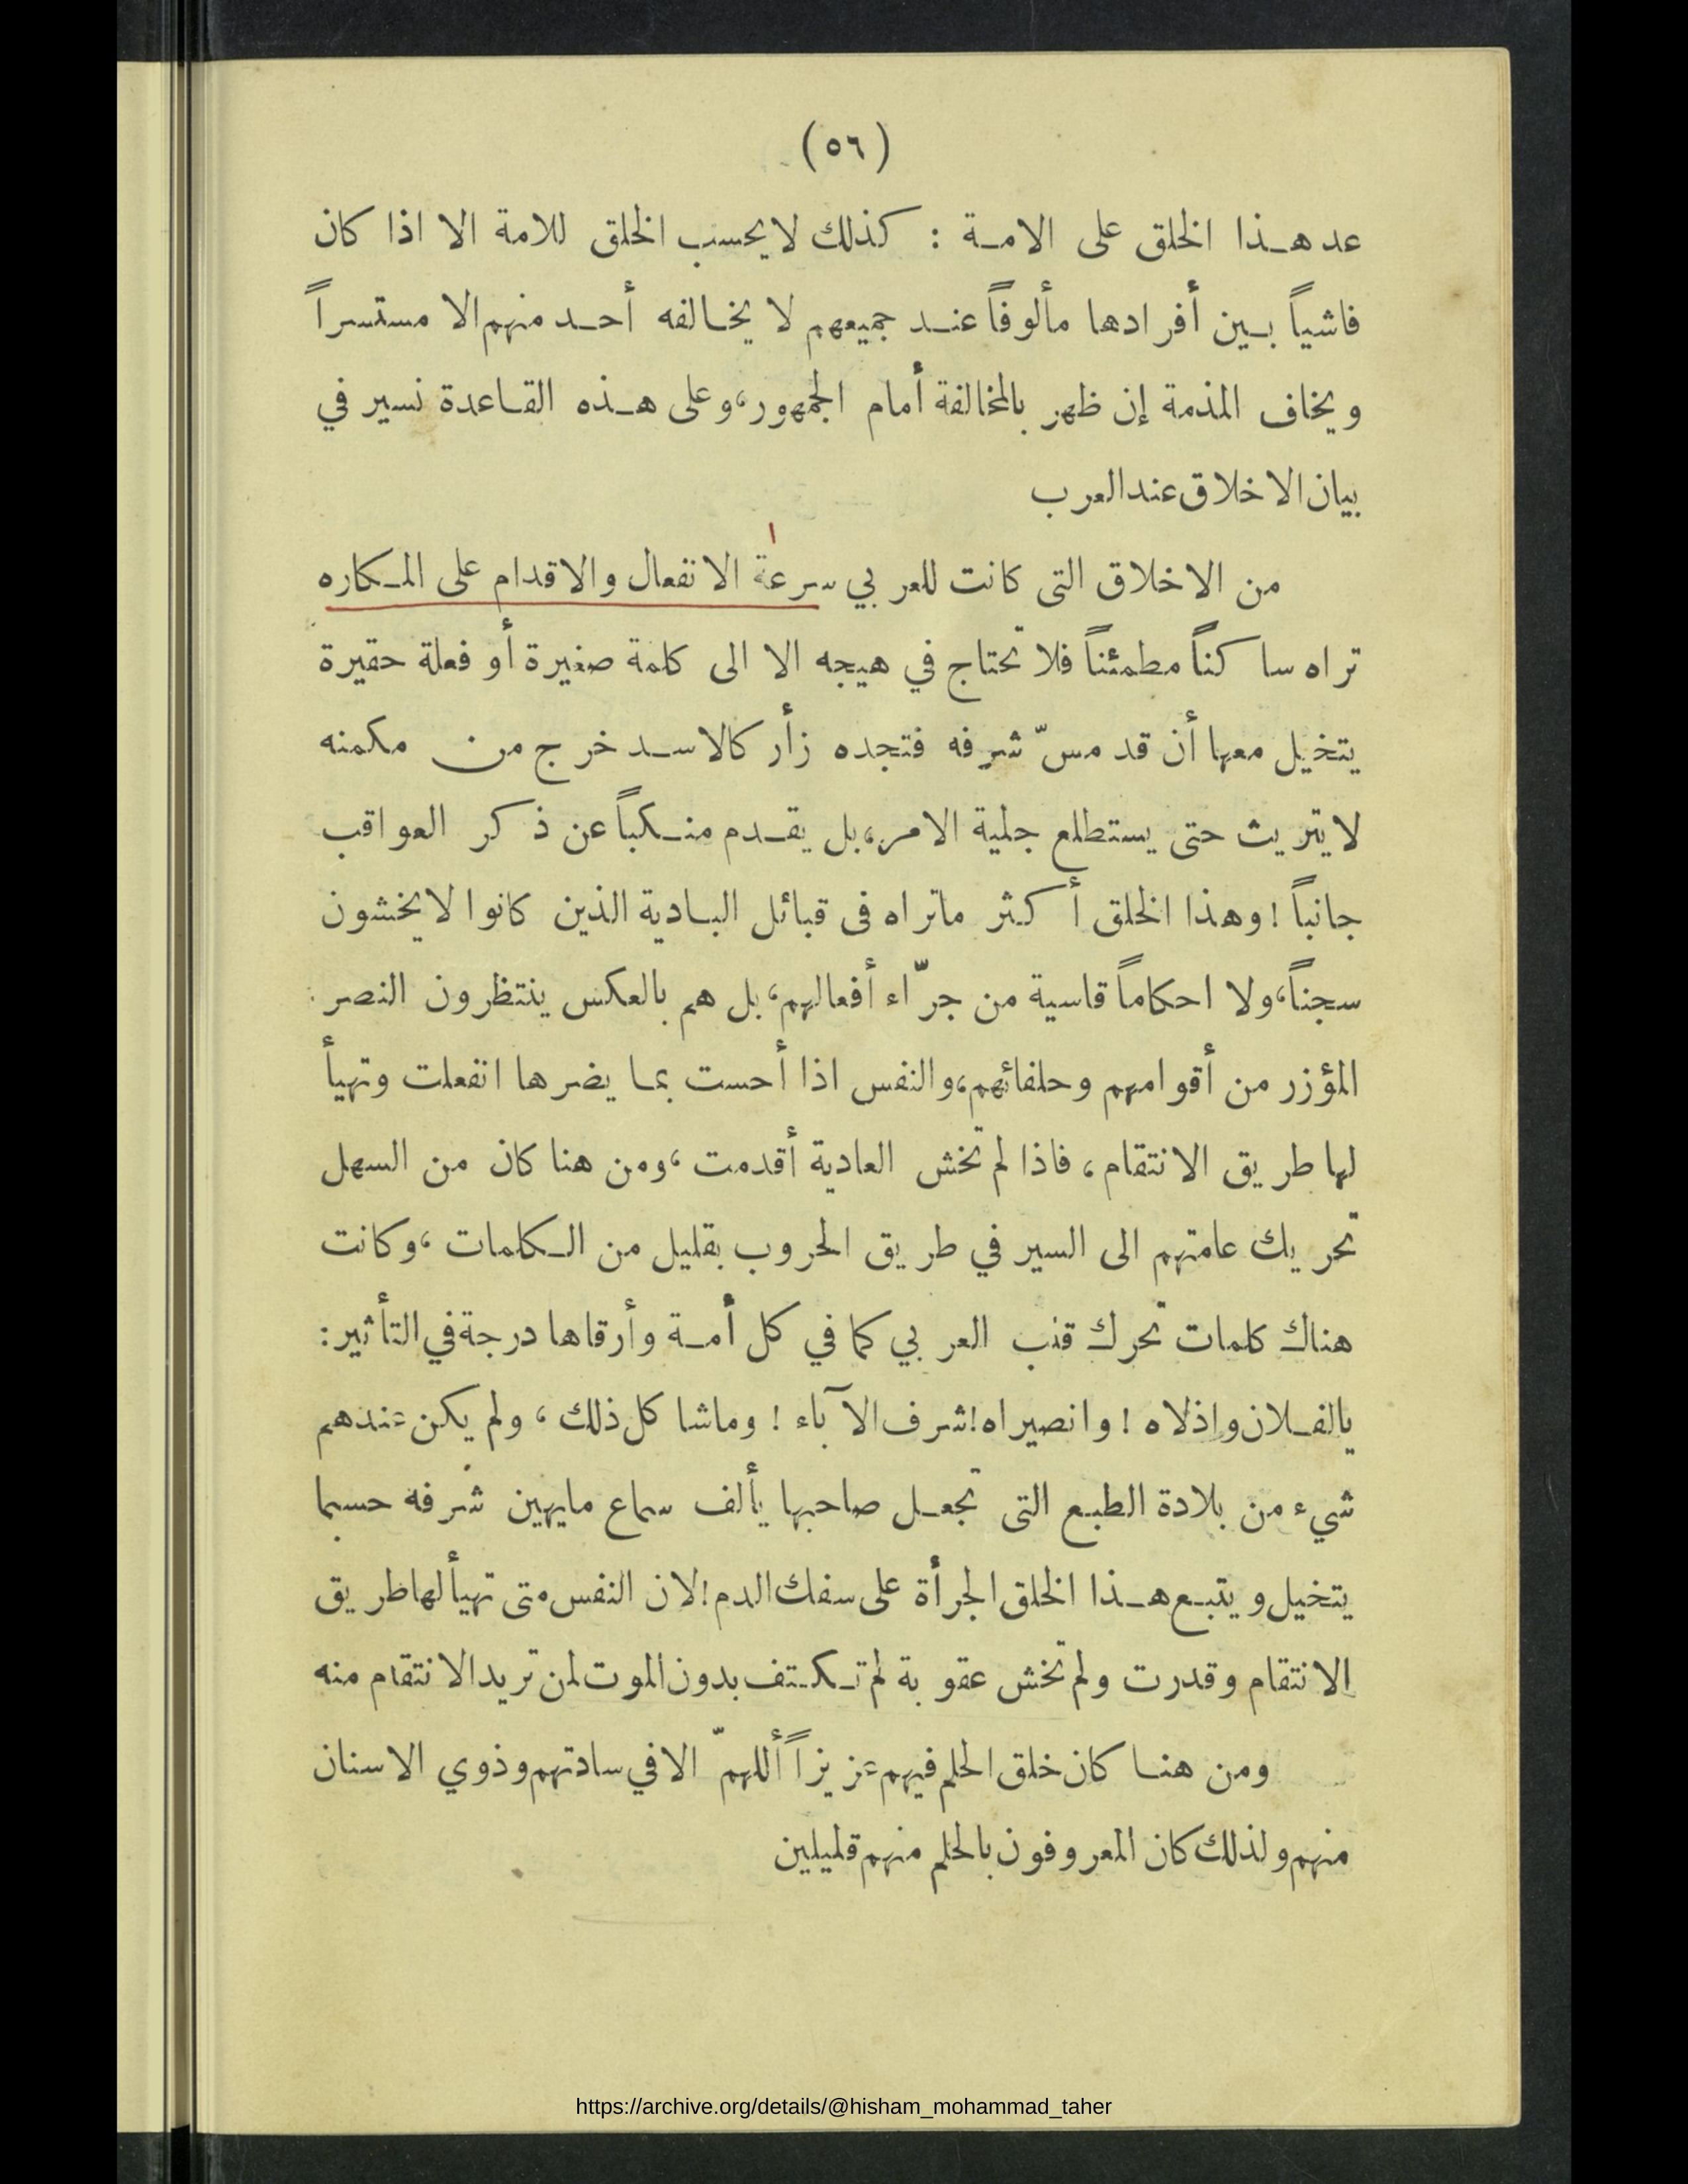 (٥٦)
عد هذا الخلق على الامة : كذلك لا يحسب الخلق للامة الا اذا كان
فاشياً بين أفرادها مألوفاً عند جميعهم لا يخالفه أحد منهم الا مستسراً
ويخاف المذمة إن ظهر بالمخالفة أمام الجمهور، وعلى هذه القاعدة نسير في
بيان الاخلاق عند العرب
من الاخلاق التى كانت للعربي سرعة الانفعال والاقدام على المكاره
تراه ساكناً مطمئناً فلا تحتاج في هيجه الا الى كلمة صغيرة أو فعلة حقيرة
يتخيل معها أن قد مسّ شرفه فتجده زأر كالاسد خرج من مكمنه
لا يتريث حتى يستطلع جلية الامر، بل يقدم منكباً عن ذكر العواقب
جانباً ! وهذا الخلق أكثر ماتراه فى قبائل البادية الذين كانوا لا يخشون
سجناً، ولا احكاماً قاسية من جرّاء أفعالهم، بل هم بالعكس ينتظرون النصر
المؤزر من أقوامهم وحلفائهم، والنفس اذا أحست بما يضرها انفعلت وتهيأ
لها طريق الانتقام ، فاذا لم تخش العادية أقدمت ، ومن هنا كان من السهل
تحريك عامتهم الى السير في طريق الحروب بقليل من الكلمات ، وكانت
هناك كلمات تحرك قلب العربي كما في كل أمة وأرقاها درجة في التأثير :
يالفلان واذلاه ! وانصيراه ! شرف الآباء ! وماشا كل ذلك ، ولم يكن عندهم
شيء من بلادة الطبع التى تجعل صاحبها يألف سماع مايهين شرفه حسبما
يتخيل ويتبع هذا الخلق الجرأة على سفك الدم ! لان النفس متى تهيأ لها طريق
الانتقام وقدرت ولم تخش عقوبة لم تكتف بدون الموت لمن تريد الانتقام منه
ومن هنا كان خلق الحلم فيهم عزيزاً أللهمّ الا في سادتهم وذوي الاسنان
منهم ولذلك كان المعروفون بالحلم منهم قليلين
https://archive.org/details/@hisham_mohammad_taher